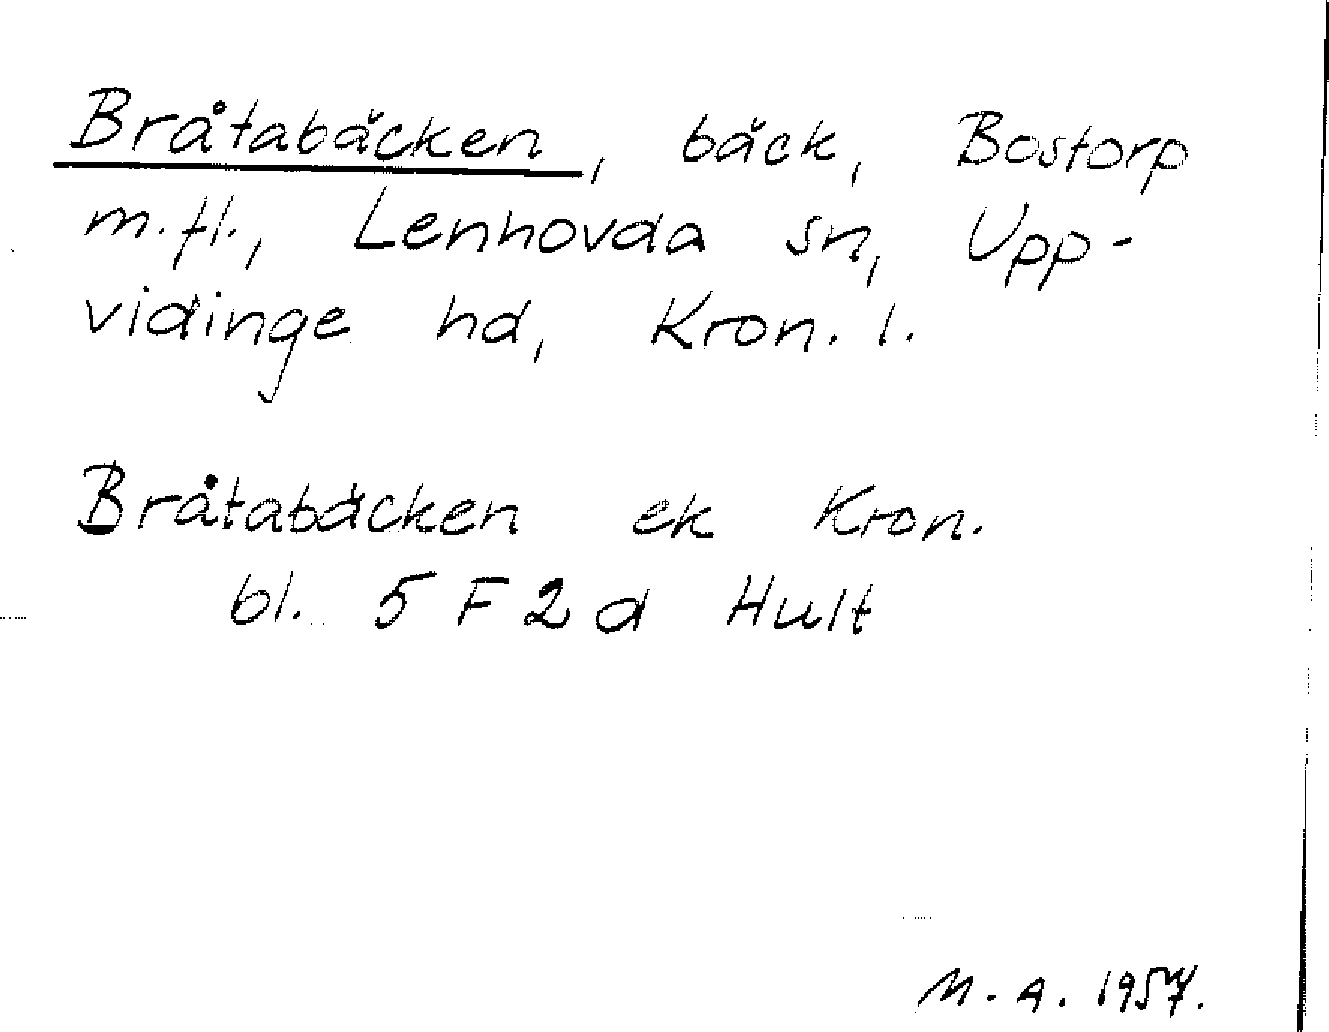 Bråtabäcken, bäck, Bostorp
m.fl., Lenhovda sn, Upp-
vidinge hd, Kron. l.
Bråtabäcken ek Kron.
bl. 5 F 2 d Hult
M. A. 1957.